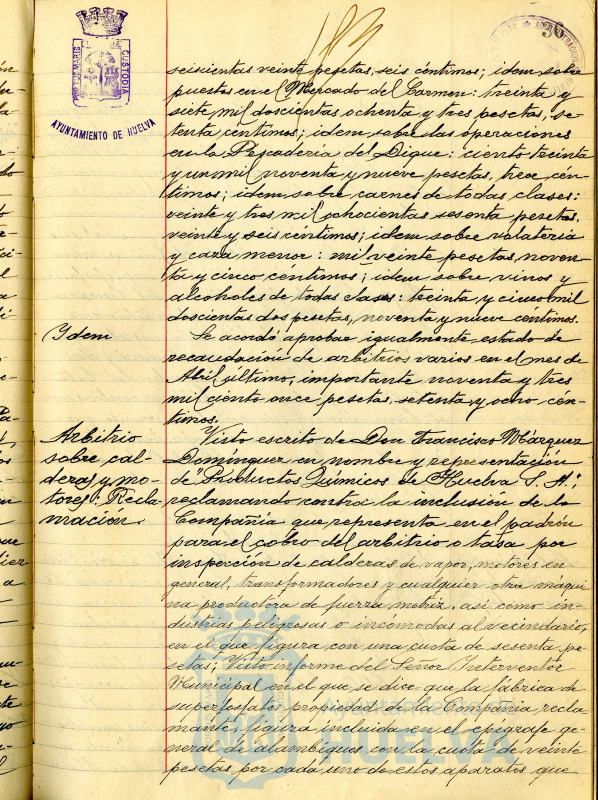 PORTUS MARIS
CUSTODIA
AYUNTAMIENTO DE HUELVA
seiscientas veinte pesetas, seis céntimos; idem sobre
puestos en el Mercado del Carmen: treinta y
siete mil doscientos ochenta y tres pesetas, se-
tenta céntimos; idem sobre las operaciones
en la Pescadería del Dique: ciento treinta
y un mil noventa y nueve pesetas, trece cén-
timos; idem sobre carnes de todas clases:
veinte y tres mil ochocientas sesenta pesetas,
veinte y seis céntimos; idem sobre volatería
y caza menor: mil veinte pesetas, noven-
ta y cinco céntimos; idem sobre vinos y
alcoholes de todas clases: treinta y cinco mil
doscientos dos pesetas, noventa y nueve céntimos.
Idem
Se acordó aprobar igualmente estado de
recaudación de arbitrios varios en el mes de
Abril último, importante noventa y tres
mil ciento once pesetas, setenta y ocho cén-
timos.
Arbitrio
sobre cal-
deras y mo-
tores: Recla-
mración.
Visto escrito de Don Francisco Márquez
Domínguez en nombre y representación
de "Productos Químicos de Huelva S. A.",
reclamando contra la inclusión de la
Compañía que representa en el padrón
para el cobro del arbitrio o tasa por
inspección de calderas de vapor, motores en
general, transformadores y cualquier otra máqui
na productora de fuerza motriz, asi como in-
dustrias peligrosas o incomodas al vecindario,
en el que figura con una cuota de sesenta pe-
setas; Visto informe del Señor Interventor
Municipal en el que se dice que la fábrica de
superfosfatos propiedad de la Compañía recla
mante, figura incluida en el epigrafe ge-
neral de alambiques con la cuota de veinte
pesetas por cada uno de estos aparatos que
Ayuntamiento de
HUELVA